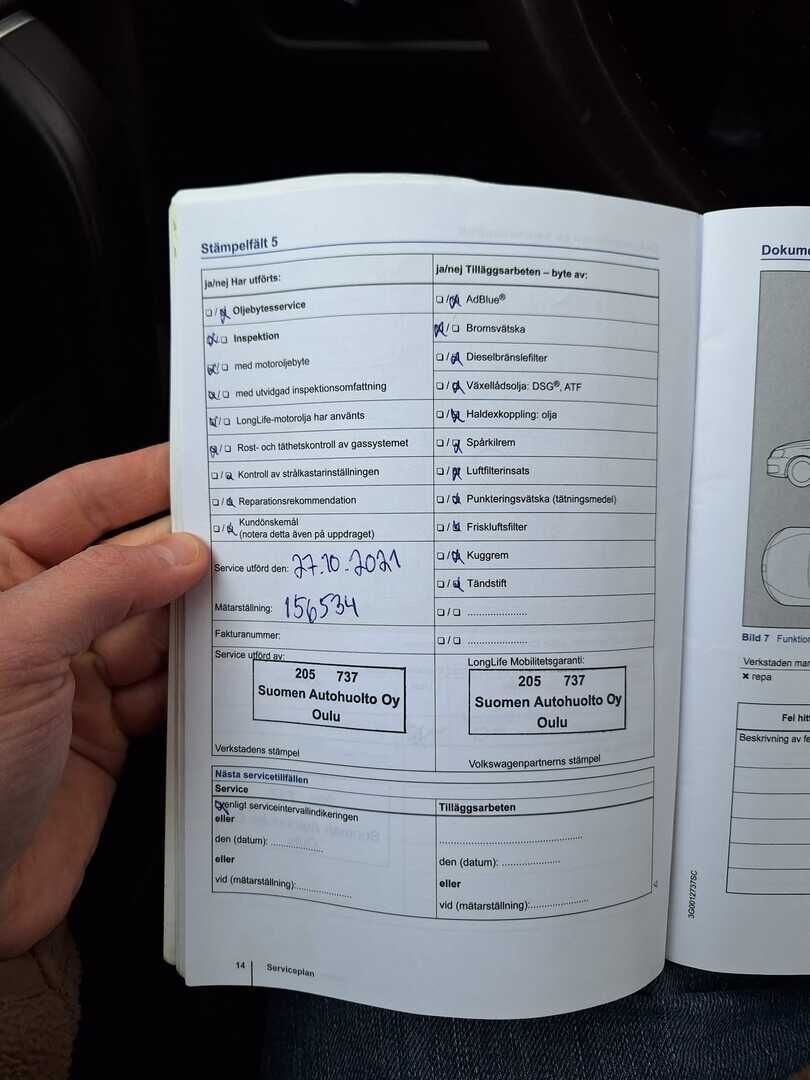 Stämpelfält 5
ja/nej Har utförts:
❏ / ☒ Oljebytesservice
☒ / ❏ Inspektion
☒ / ❏ med motoroljebyte
☒ / ❏ med utvidgad inspektionsomfattning
☒ / ❏ LongLife-motorolja har använts
☒ / ❏ Rost- och täthetskontroll av gassystemet
❏ / ☒ Kontroll av strålkastarinställningen
❏ / ☒ Reparationsrekommendation
❏ / ☒ Kundönskemål
(notera detta även på uppdraget)
Service utförd den: 27.10.2021
Mätarställning: 156534
Fakturanummer:
Service utförd av:
205 737
Suomen Autohuolto Oy
Oulu
Verkstadens stämpel
ja/nej Tilläggsarbeten – byte av:
❏ / ☒ AdBlue®
☒ / ❏ Bromsvätska
❏ / ☒ Dieselbränslefilter
❏ / ☒ Växellådsolja: DSG®, ATF
❏ / ☒ Haldexkoppling: olja
❏ / ☒ Spårkilrem
❏ / ☒ Luftfilterinsats
❏ / ☒ Punkteringsvätska (tätningsmedel)
❏ / ☒ Friskluftsfilter
❏ / ☒ Kuggrem
❏ / ☒ Tändstift
❏ / ❏ .....................
❏ / ❏ .....................
LongLife Mobilitetsgaranti:
205 737
Suomen Autohuolto Oy
Oulu
Volkswagenpartnerns stämpel
Nästa servicetillfällen
Service
☒ enligt serviceintervallindikeringen
eller
den (datum): ..................
eller
vid (mätarställning):...................
Tilläggsarbeten
.................................................
den (datum): ....................
eller
vid (mätarställning):....................
14 Serviceplan
Dokume
Bild 7 Funktion
Verkstaden mar
✖ repa
Fel hitt
Beskrivning av fe
3G0012737SC